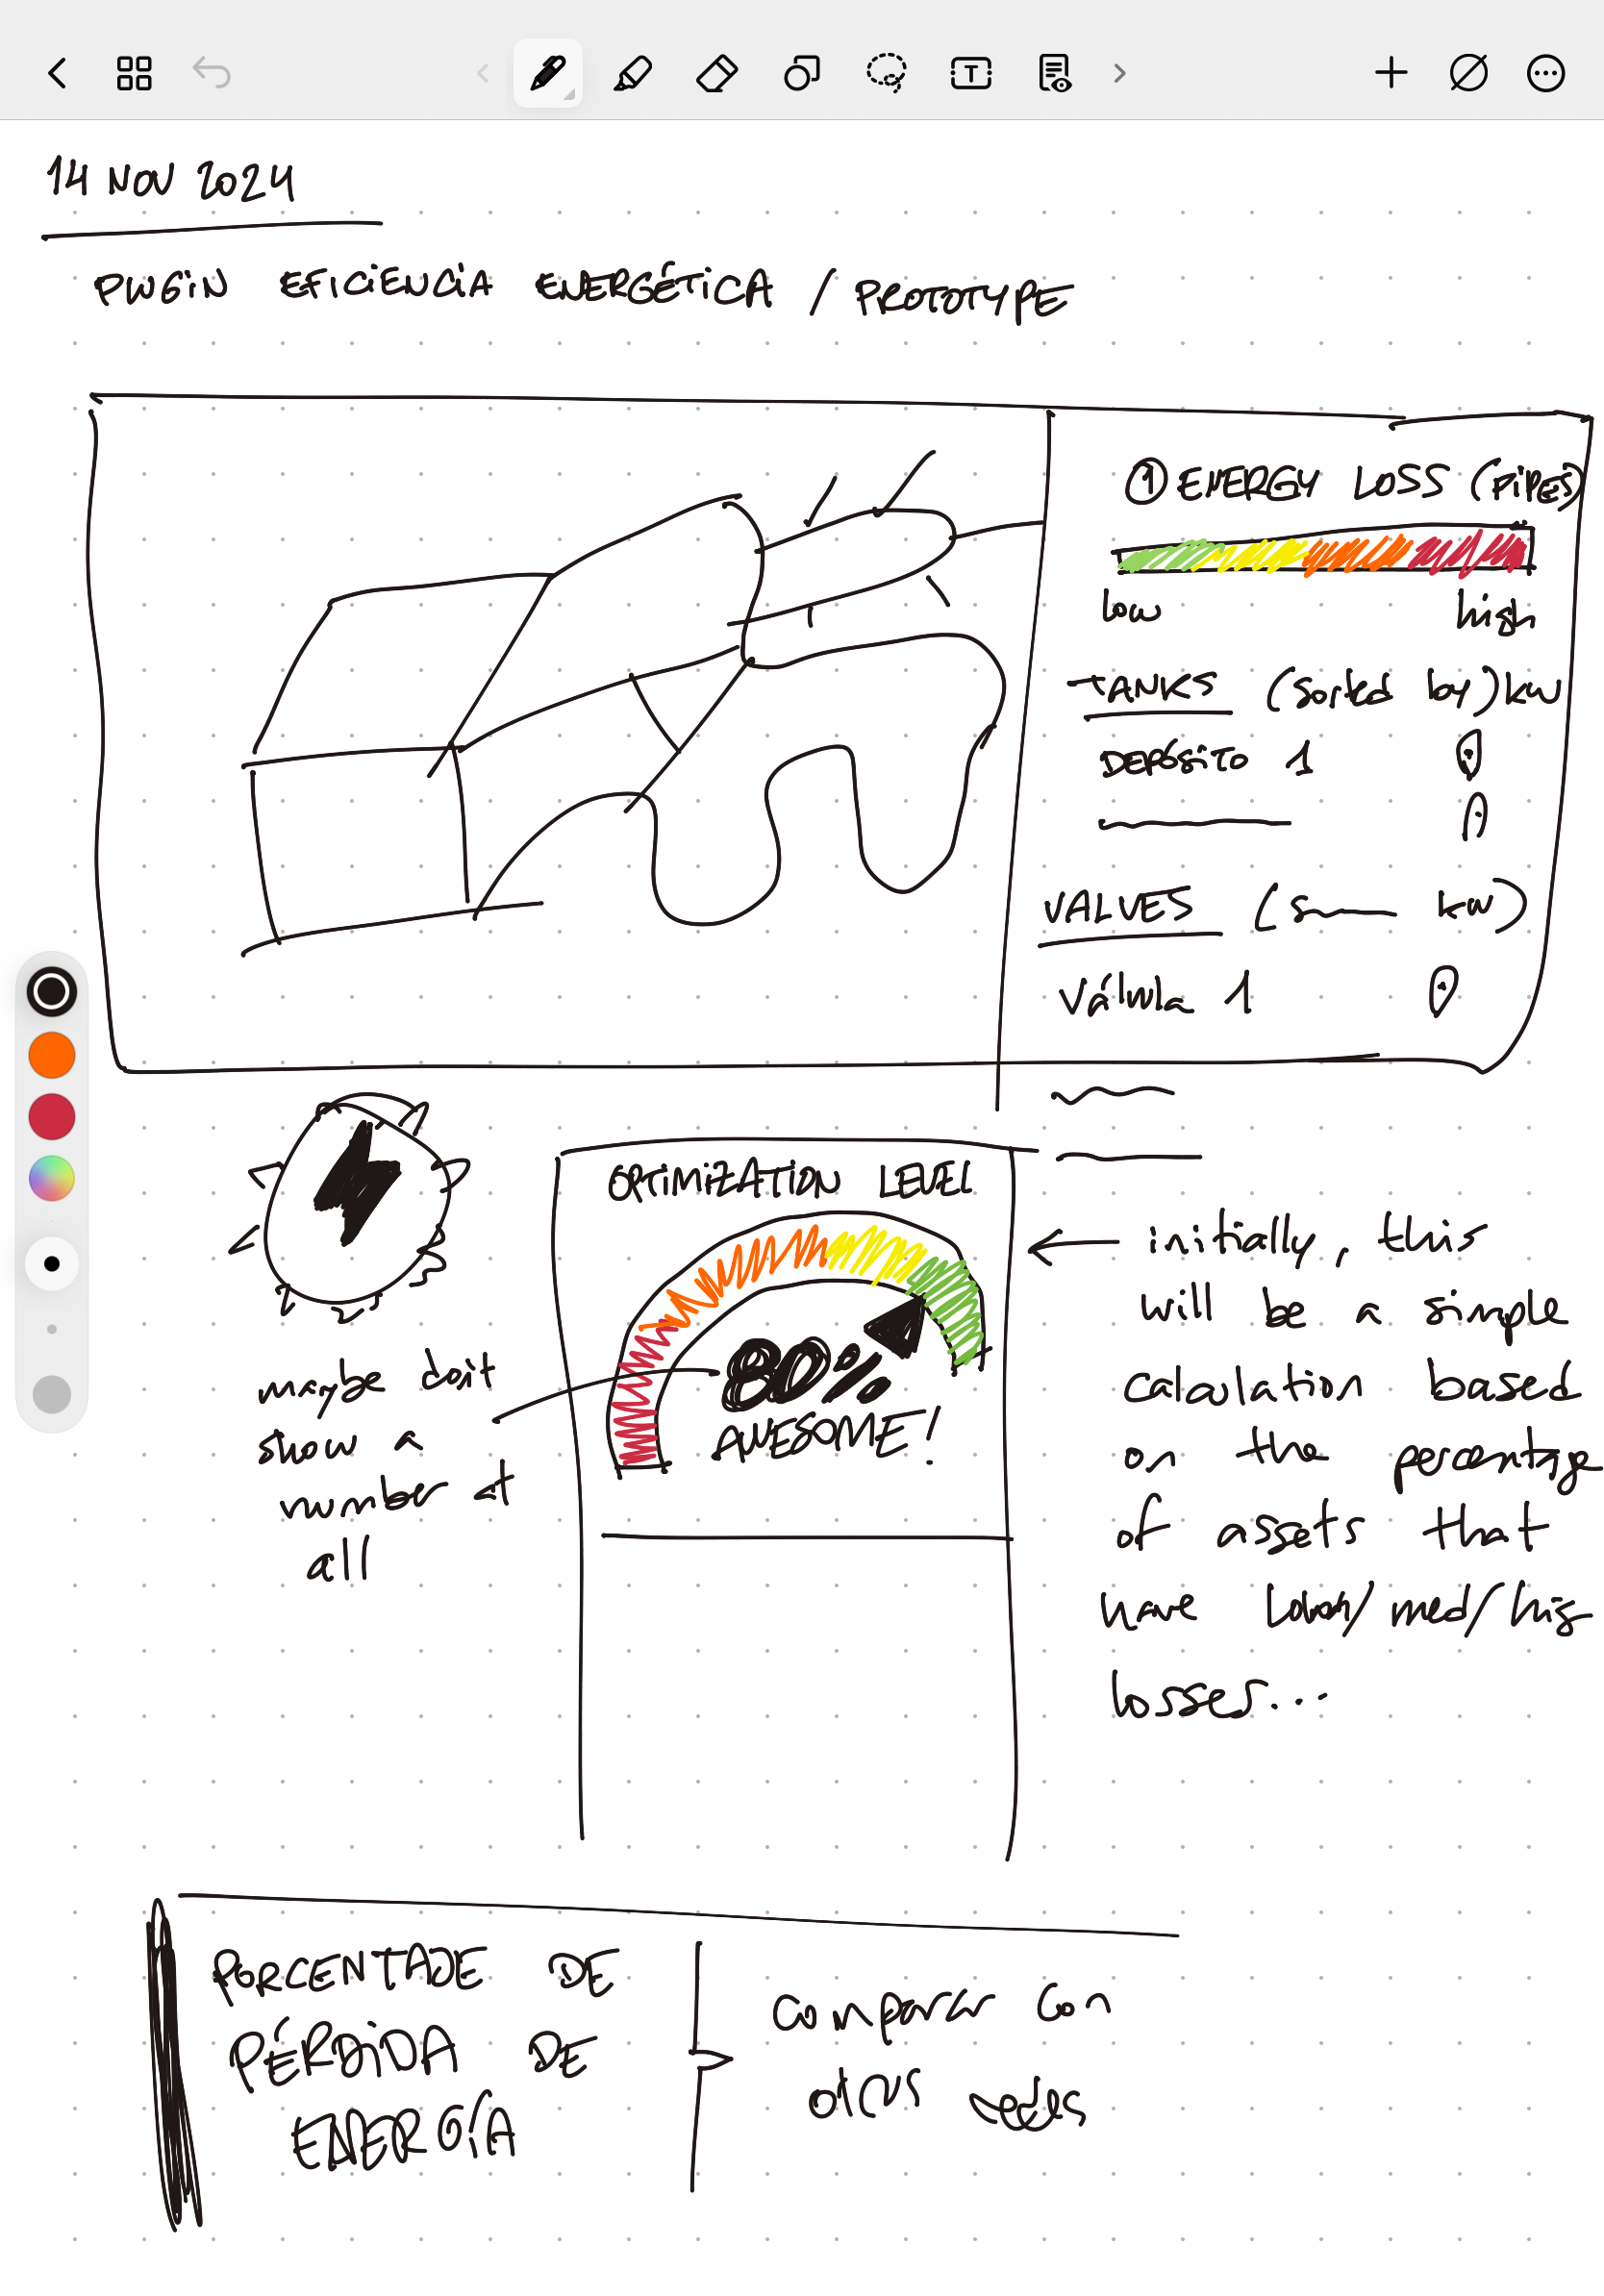 14 NOV 2024
PLUGIN EFICIENCIA ENERGÉTICA / PROTOTYPE
① ENERGY LOSS (PIPES)
low high
TANKS (sorted by) kW
DEPÓSITO 1
VALVES (s kW)
Válvula 1
OPTIMIZATION LEVEL
80%
AWESOME!
maybe don't
show a
number at
all
initially, this
will be a simple
calculation based
on the percentage
of assets that
have low/med/hig
losses...
PORCENTAJE DE
PÉRDIDA DE
ENERGÍA
comparar con
otras redes